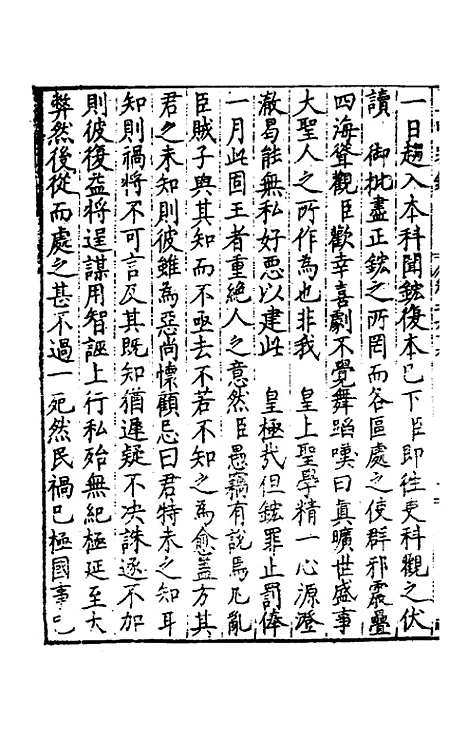 一日趨入本科聞鋐復本已下臣即往吏科觀之伏
讀　御批盡正鋐之所罔而各區處之使群邪震疊
四海聳觀臣歡幸喜劇不覺舞蹈嘆曰真曠世盛事
大聖人之所作為也非我　皇上聖學精一心源澄
澈曷能無私好惡以建此　皇極哉但鋐罪止罰俸
一月此固王者重絕人之意然臣愚竊有說焉凡亂
臣賊子與其知而不亟去不若不知之為愈蓋方其
君之未知則彼雖為惡尚懷顧忌曰君特未之知耳
知則禍將不可言及其既知猶遲疑不决誅逐不加
則彼復益將逞謀用智誣上行私殆無紀極延至大
弊然後從而處之甚不過一死然民禍已極國事已